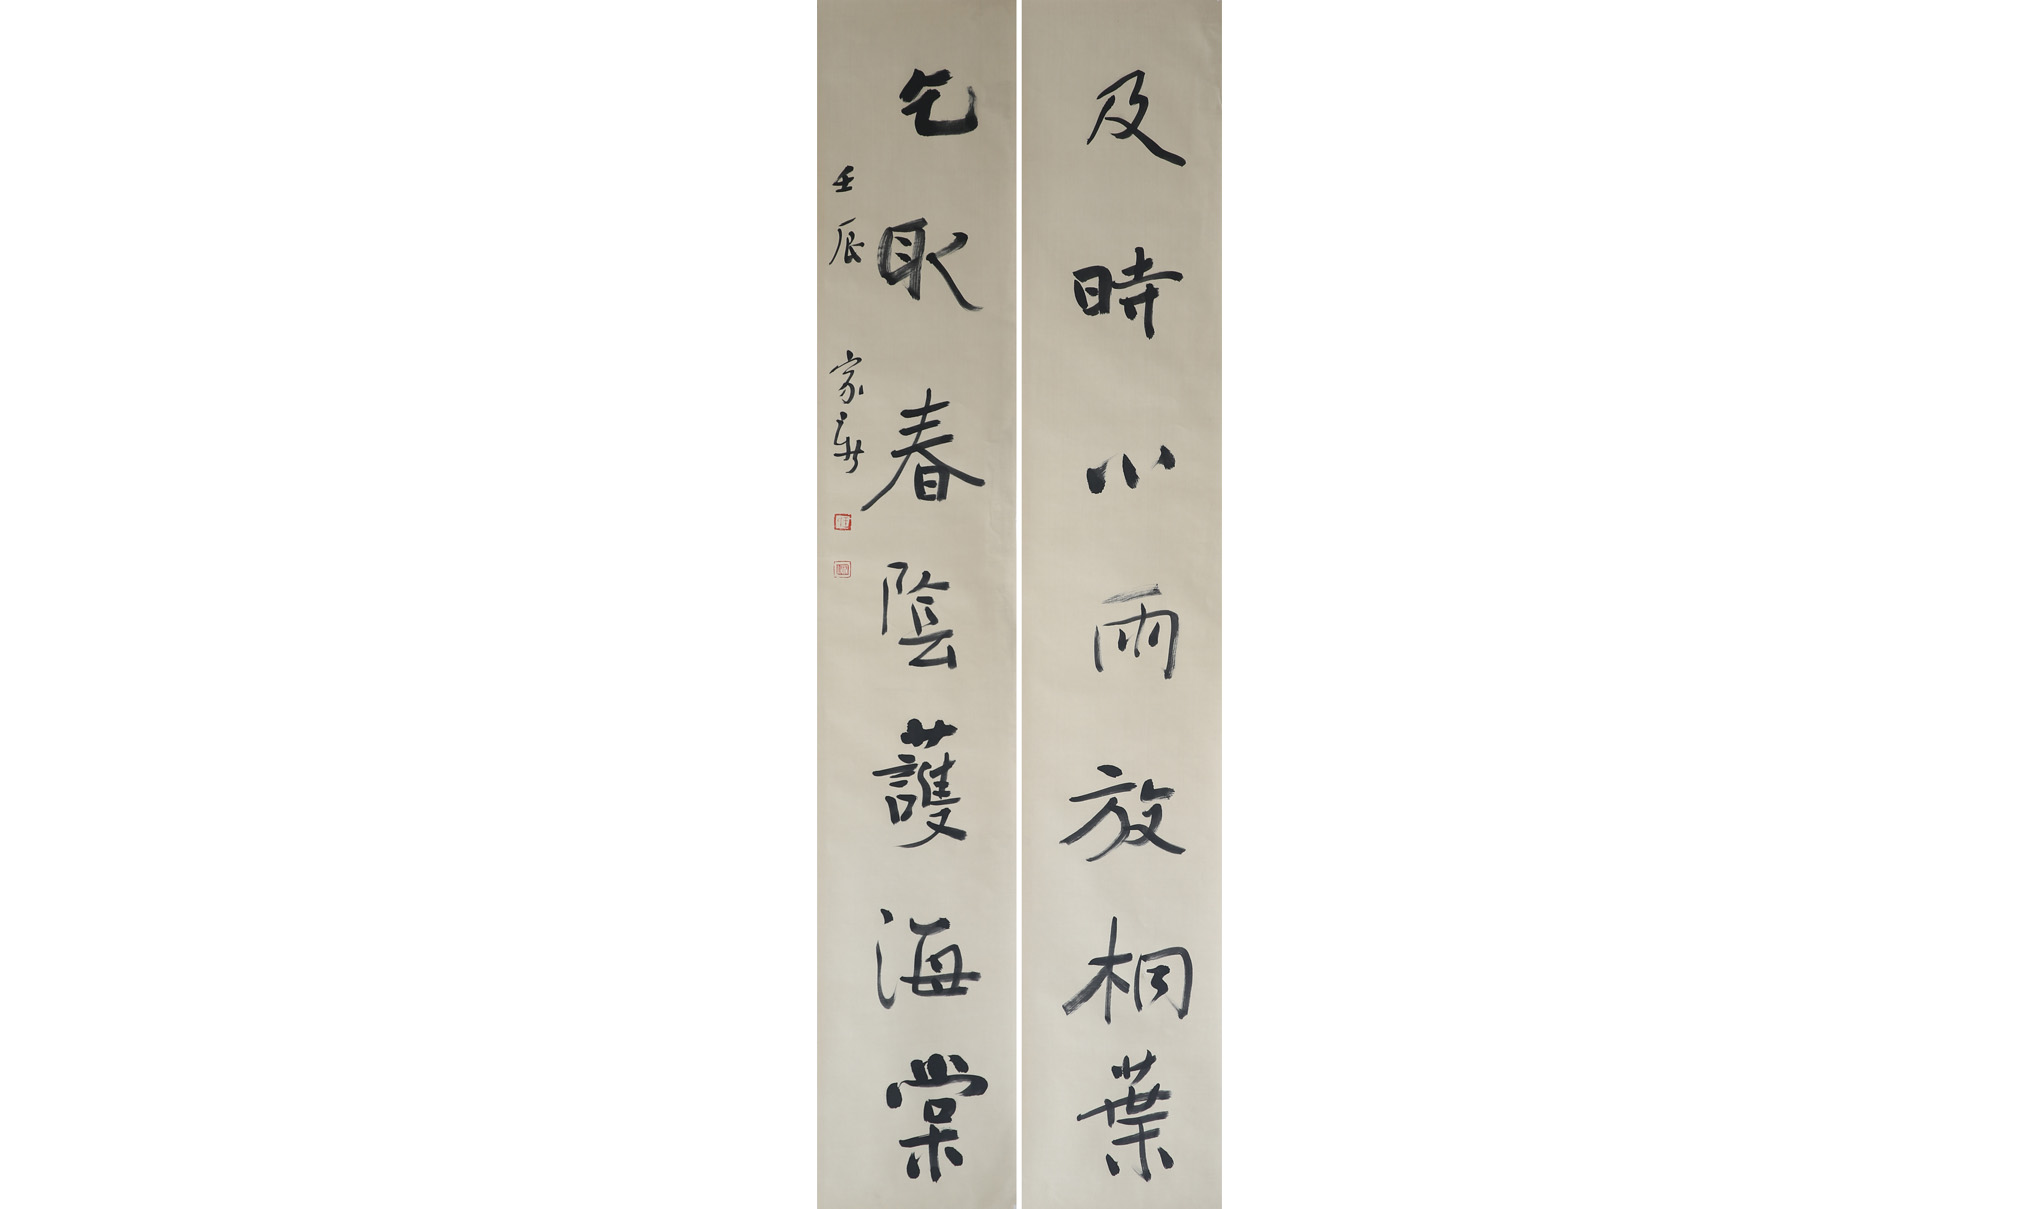 及時小雨放桐葉
乞取春陰護海棠
壬辰 家新